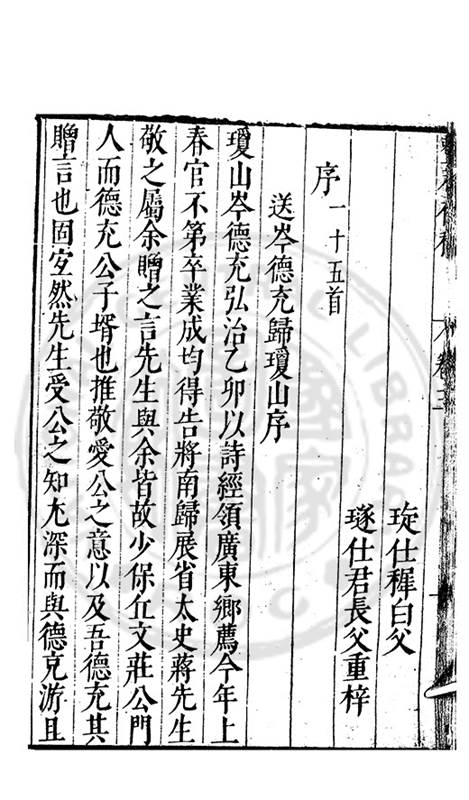 琁仕穉白父
璲仕君長父重梓
序一十五首
送岑德充歸瓊山序
瓊山岑德充弘治乙卯以詩經領廣東鄉薦今年上
春官不第卒業成均得告將南歸展省太史蔣先生
敬之屬余贈之言先生與余皆故少保丘文莊公門
人而德充公子壻也推敬愛公之意以及吾德充其
贈言也固宜然先生受公之知尤深而與德充游且